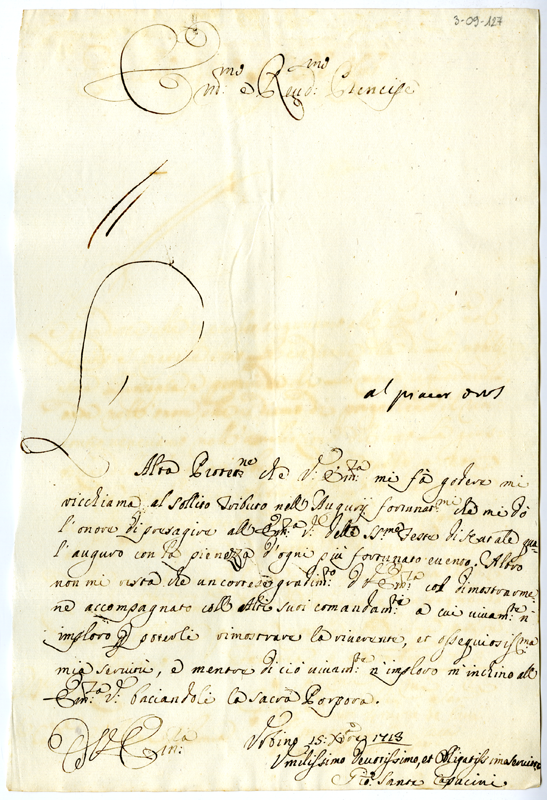 3-09-127
Em:mo e Reud:mo Prencipe
al piacer
L'Alta Protet:ne che V: Em:za mi fà godere mi
ricchiama al sollito tributo nell'Augurij fortunat:mi che mi dò
l'onore di presagire all Em:za V: delle SS:me Feste di Natale qua-
l'auguro con la pienezza d'ogni più fortunato evento. Altro
non mi resta che un cortese gradim:to di V: Em:za col dimostrarme-
ne accompagnato coll'Alti suoi comandam:ti a cui vivam:te n'
imploro p poterli rimostrare la riverente, et ossequiosiss:ma
mia servitù, e mentre di ciò vivam:te n'imploro m'inchino all
Em:za V: baciandole la Sacra Porpora.
Di V: Em:za
Vrbino 15: Xbre 1713
Vmilissimo Devotissimo, et Obligatissimo Servitore
Sante Capucini.